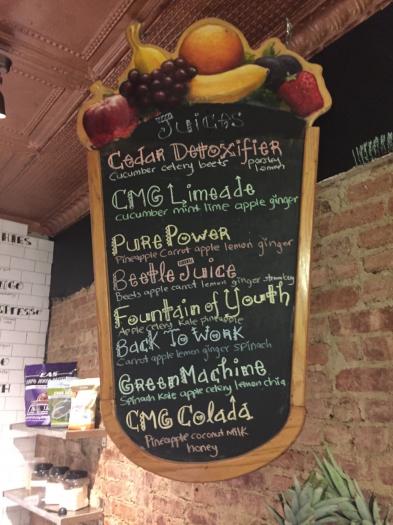 Juices
Cedar Detoxifier
cucumber celery beets parsley
lemon
CMG Limeade
cucumber mint lime apple ginger
Pure Power
Pineapple Carrot apple lemon ginger
Beetle Juice
Beets apple carrot lemon ginger
Fountain of Youth
Apple celery Kale pineapple
Back To Work
Carrot apple lemon ginger spinach
Green Machine
Spinach Kale apple celery lemon chia
CMG Colada
Pineapple coconut milk
honey
EAS